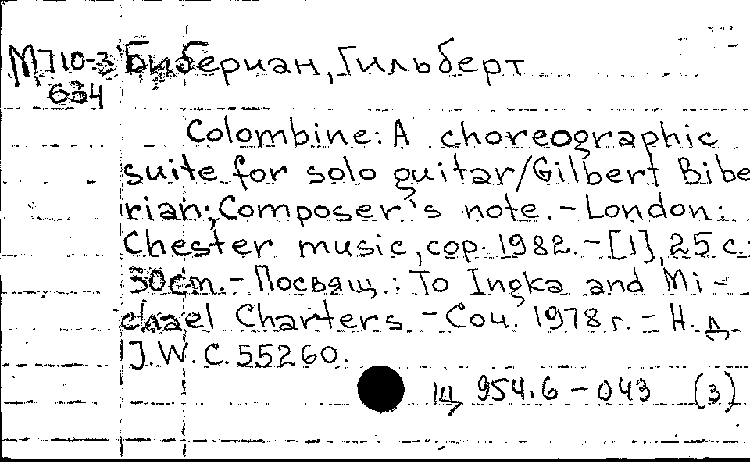 М710-3 Бибериан, Гильберт
634
Colombine: A choreographic
suite for solo guitar/Gilbert Bibe
rian; Composer's note. - London:
Chester music, cop. 1982. - [1], 25 с.
30см. - Посвящ.: To Ingka and Mi-
chael Charters. - Соч. 1978 г. - Н. д.
J.W.C. 55260.
Щ 954.6 - 043 (3)